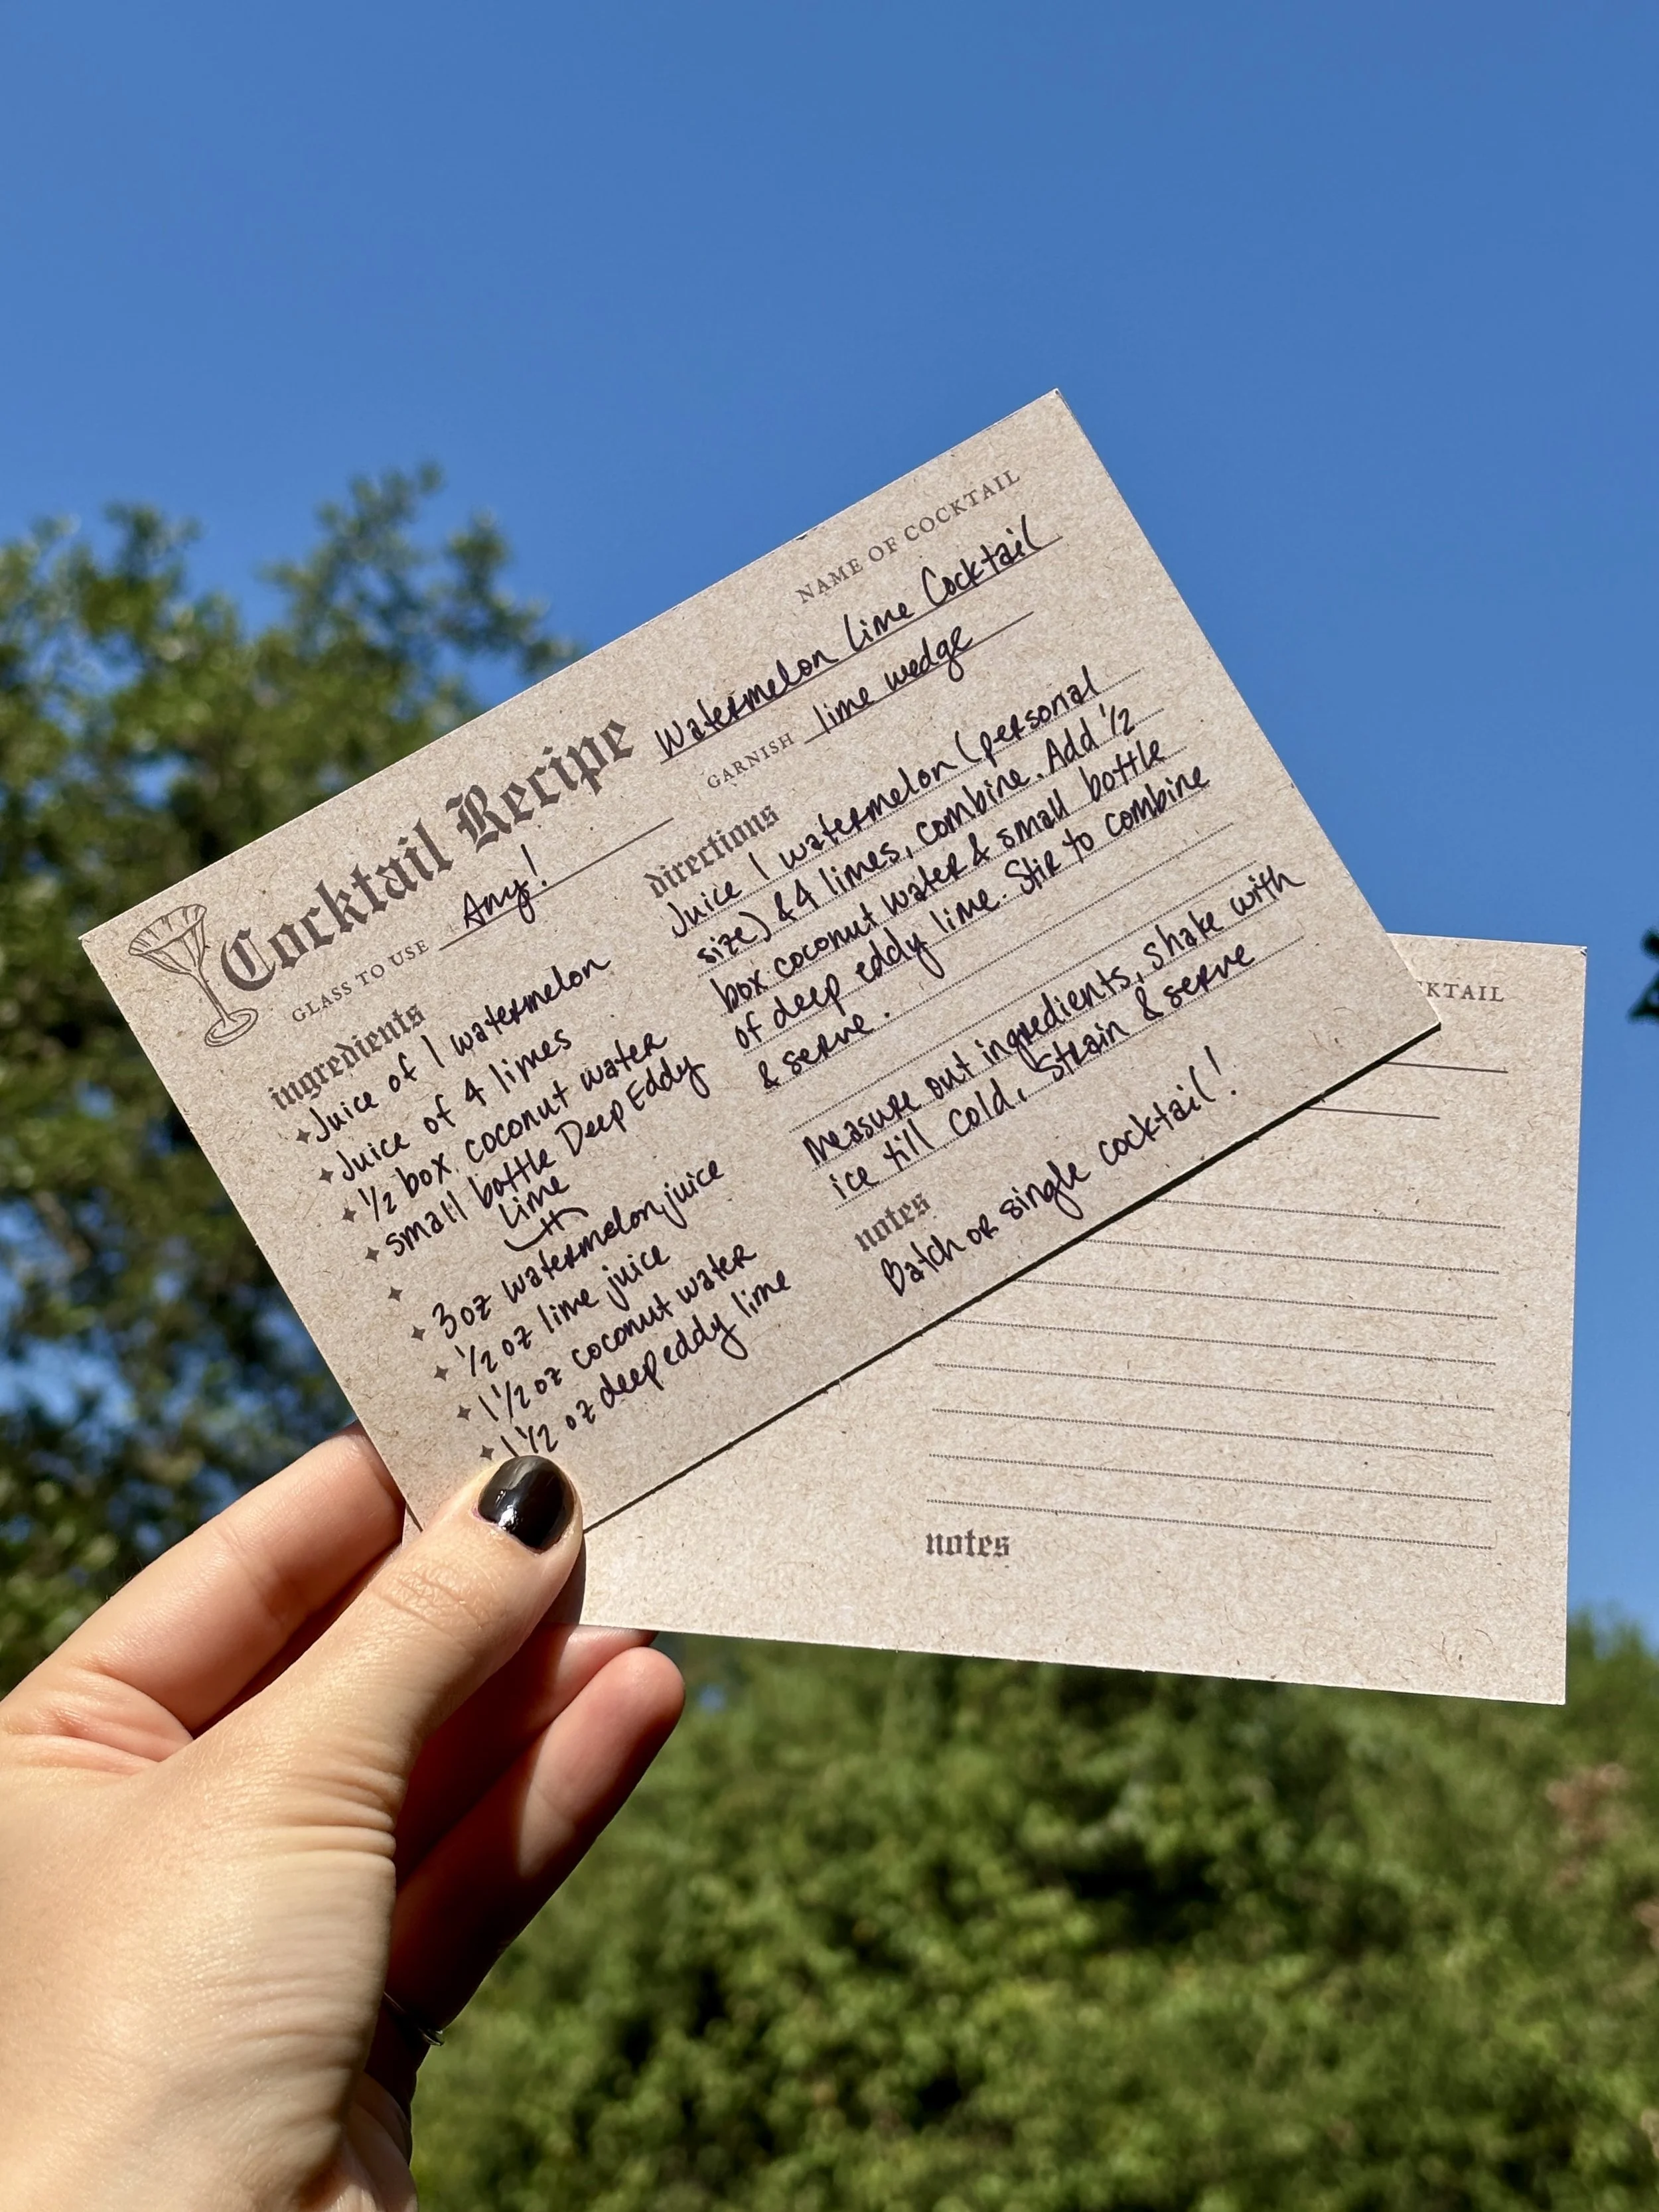 NAME OF COCKTAIL
Cocktail Recipe Watermelon Lime Cocktail
GLASS TO USE Any!
GARNISH lime wedge
ingredients
Juice of 1 watermelon
Juice of 4 limes
1/2 box coconut water
small bottle Deep Eddy
Lime
3 oz watermelon juice
1/2 oz lime juice
1 1/2 oz coconut water
1 1/2 oz deep eddy lime
directions
Juice 1 watermelon (personal
size) & 4 limes, combine. Add 1/2
box coconut water & small bottle
of deep eddy lime. Stir to combine
& serve.
Measure out ingredients, shake with
ice till cold, Strain & serve
notes
Batch or single cocktail!
KTAIL
notes